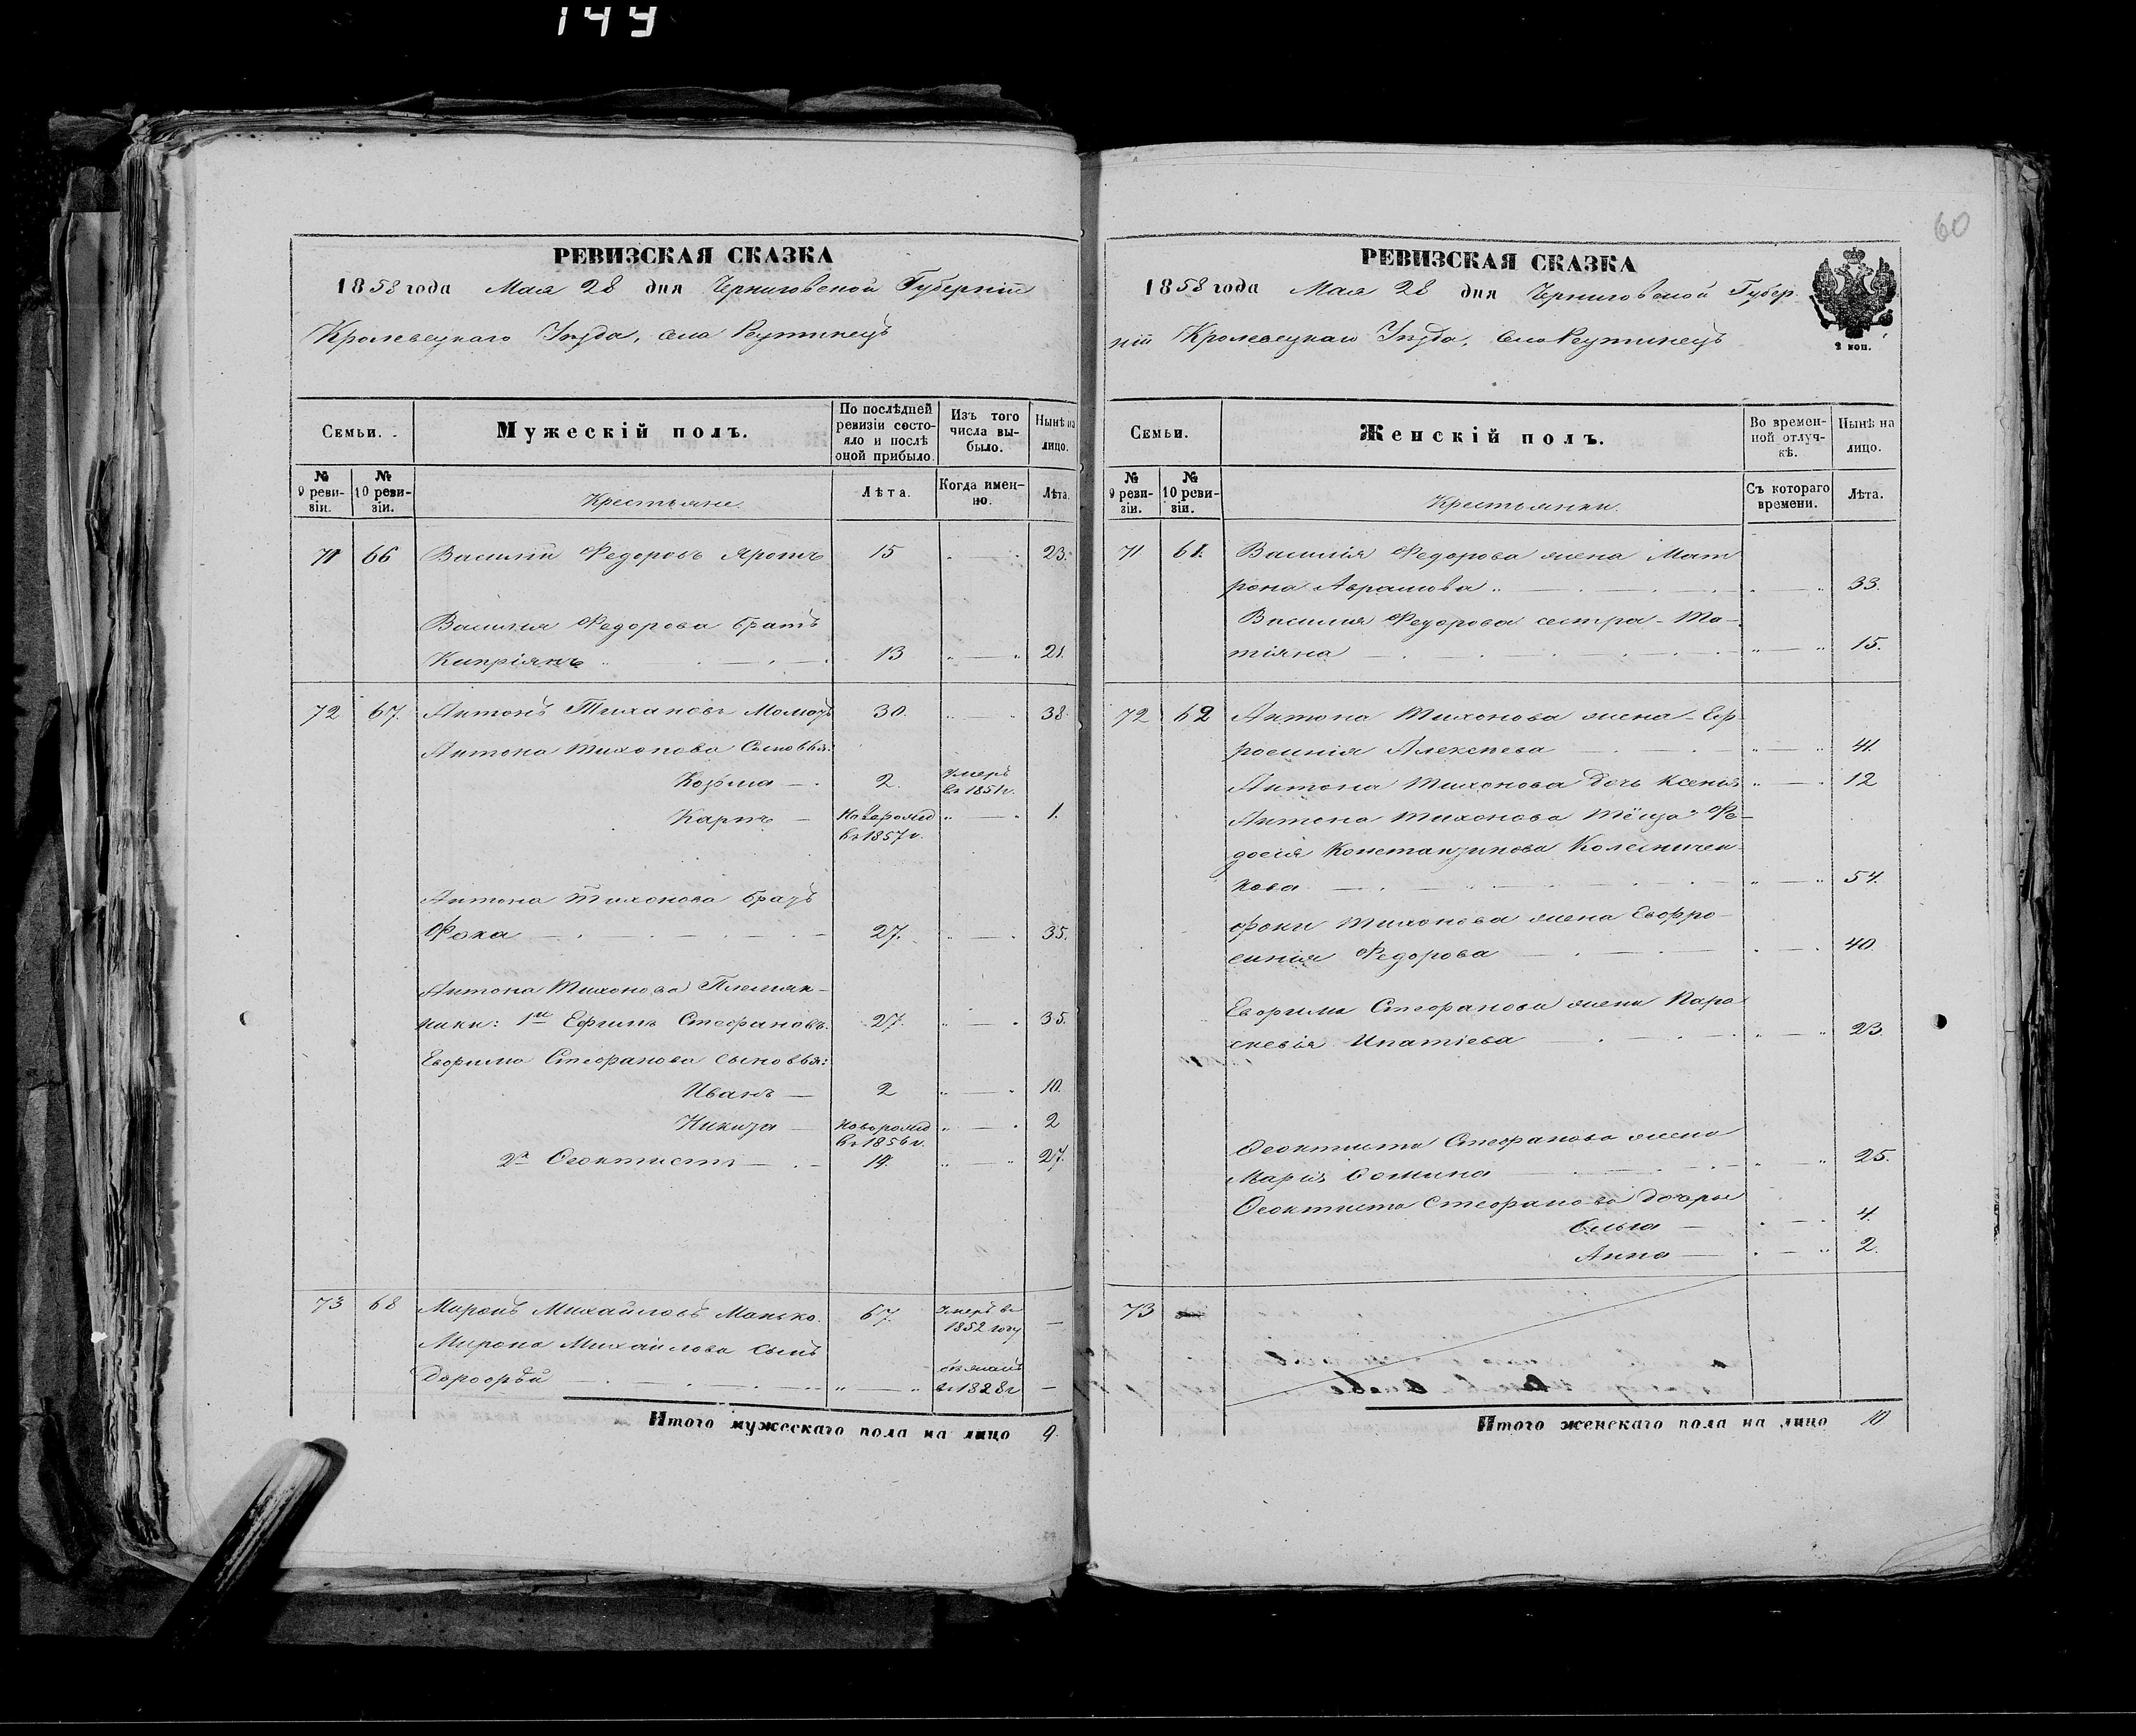 149
60
РЕВИЗСКАЯ СКАЗКА
1858 года Мая 28 дня Черниговской Губерніи
Кролевецкаго Уѣзда, села Реутинецъ
Семьи.
Мужескій полъ.
По послѣдней ревизіи состояло и послѣ оной прибыло.
Изъ того числа выбыло.
Нынѣ на лицо.
№ 9 ревизіи.
№ 10 ревизіи.
Крестьяне.
Лѣта.
Когда именно.
Лѣта.
71 66 Василій Федоровъ 15 23.
Василія Федорова братъ
Кипріянъ 13 21.
72 67. Антонъ Тихановъ 30. 38.
Антона Тихонова Сыновья:
Козьма 2. Умеръ въ 1851 г.
Карпъ Новорожд въ 1857 г. 1.
Антона Тихонова братъ
Фока 27. 35.
Антона Тихонова Племян-
ники: 1й Ефимъ Стефановъ. 27. 35.
Евфима Стефанова сыновья:
Иванъ 2 10.
Никита Новорожд въ 1856 г. 2
2й Феоктистъ 19. 27.
73 68 Миронъ Михайловъ Манько. 67. Умеръ въ 1852 году
Мирона Михайлова сынъ
Дорофѣй въ 1828 г
Итого мужескаго пола на лицо 9.
РЕВИЗСКАЯ СКАЗКА
1858 года Мая 28 дня Черниговской Губер-
ніи Кролевецкаго Уѣзда, села Реутинецъ
2 коп.
Семьи.
Женскій полъ.
Во временной отлучкѣ.
Нынѣ на лицо.
№ 9 ревизіи.
№ 10 ревизіи.
Крестьянки.
Съ котораго времени.
Лѣта.
71 61. Василія Федорова жена Мат
рона Аврамова 33.
Василія Федорова сестра - Та-
тіяна 15.
72 62 Антона Тихонова жена - Еф-
росинія Алексѣева 41.
Антона Тихонова дочь Ксенія 12
Антона Тихонова тёща Фе-
досія Константинова Колесничен-
кова 54.
Фоки Тихонова жена Евфро-
синія Федорова 40.
Евфима Стефанова жена Пара
скевія Ипатіева 23.
Феоктиста Стефанова жена
Марія Фомина 25.
Феоктиста Стефанова дочери
Ольга 4.
Анна 2.
73
Итого женскаго пола на лицо 10